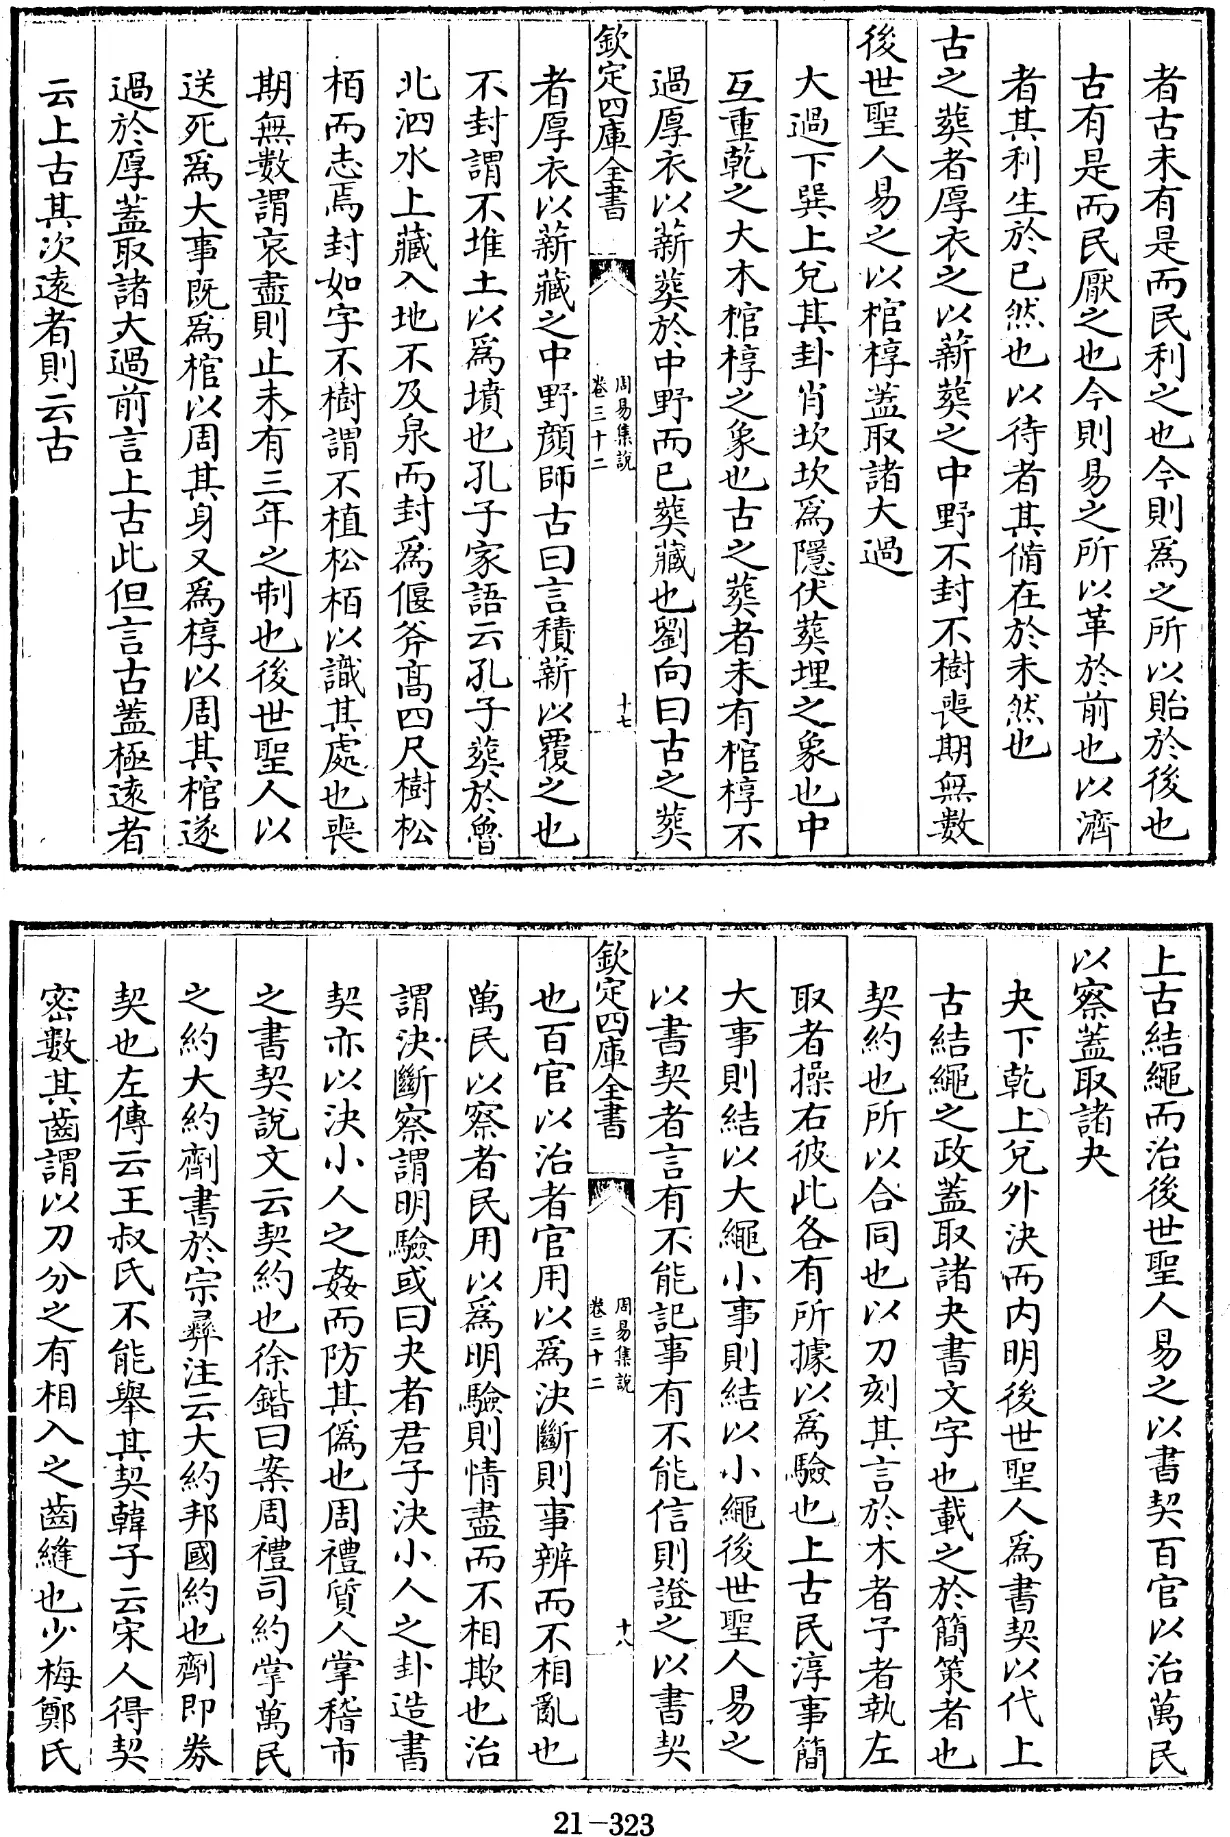 者古未有是而民利之也今則爲之所以貽於後也
古有是而民厭之也今則易之所以革於前也以濟
者其利生於已然也以待者其備在於未然也
古之葬者厚衣之以薪葬之中野不封不樹喪期無數
後世聖人易之以棺椁蓋取諸大過
大過下巽上兌其卦肖坎坎爲隱伏葬埋之象也中
互重乾之大木棺椁之象也古之葬者未有棺椁不
過厚衣以薪葬於中野而已葬藏也劉向曰古之葬
欽定四庫全書
周易集說
卷三十二
十七
者厚衣以薪藏之中野顔師古曰言積薪以覆之也
不封謂不堆土以爲墳也孔子家語云孔子葬於魯
北泗水上藏入地不及泉而封爲偃斧高四尺樹松
栢而志焉封如字不樹謂不植松栢以識其處也喪
期無數謂哀盡則止未有三年之制也後世聖人以
送死爲大事既爲棺以周其身又爲椁以周其棺遂
過於厚蓋取諸大過前言上古此但言古蓋極遠者
云上古其次遠者則云古
上古結繩而治後世聖人易之以書契百官以治萬民
以察蓋取諸夬
夬下乾上兌外決而内明後世聖人爲書契以代上
古結繩之政蓋取諸夬書文字也載之於簡策者也
契約也所以合同也以刀刻其言於木者予者執左
取者操右彼此各有所據以爲驗也上古民淳事簡
大事則結以大繩小事則結以小繩後世聖人易之
以書契者言有不能記事有不能信則證之以書契
欽定四庫全書
周易集說
卷三十二
十八
也百官以治者官用以爲決斷則事辨而不相亂也
萬民以察者民用以爲明驗則情盡而不相欺也治
謂決斷察謂明驗或曰夬者君子決小人之卦造書
契亦以決小人之姦而防其僞也周禮質人掌稽市
之書契說文云契約也徐鍇曰案周禮司約掌萬民
之約大約劑書於宗彝注云大約邦國約也劑即劵
契也左傳云王叔氏不能舉其契韓子云宋人得契
密數其齒謂以刀分之有相入之齒縫也少梅鄭氏
21-323